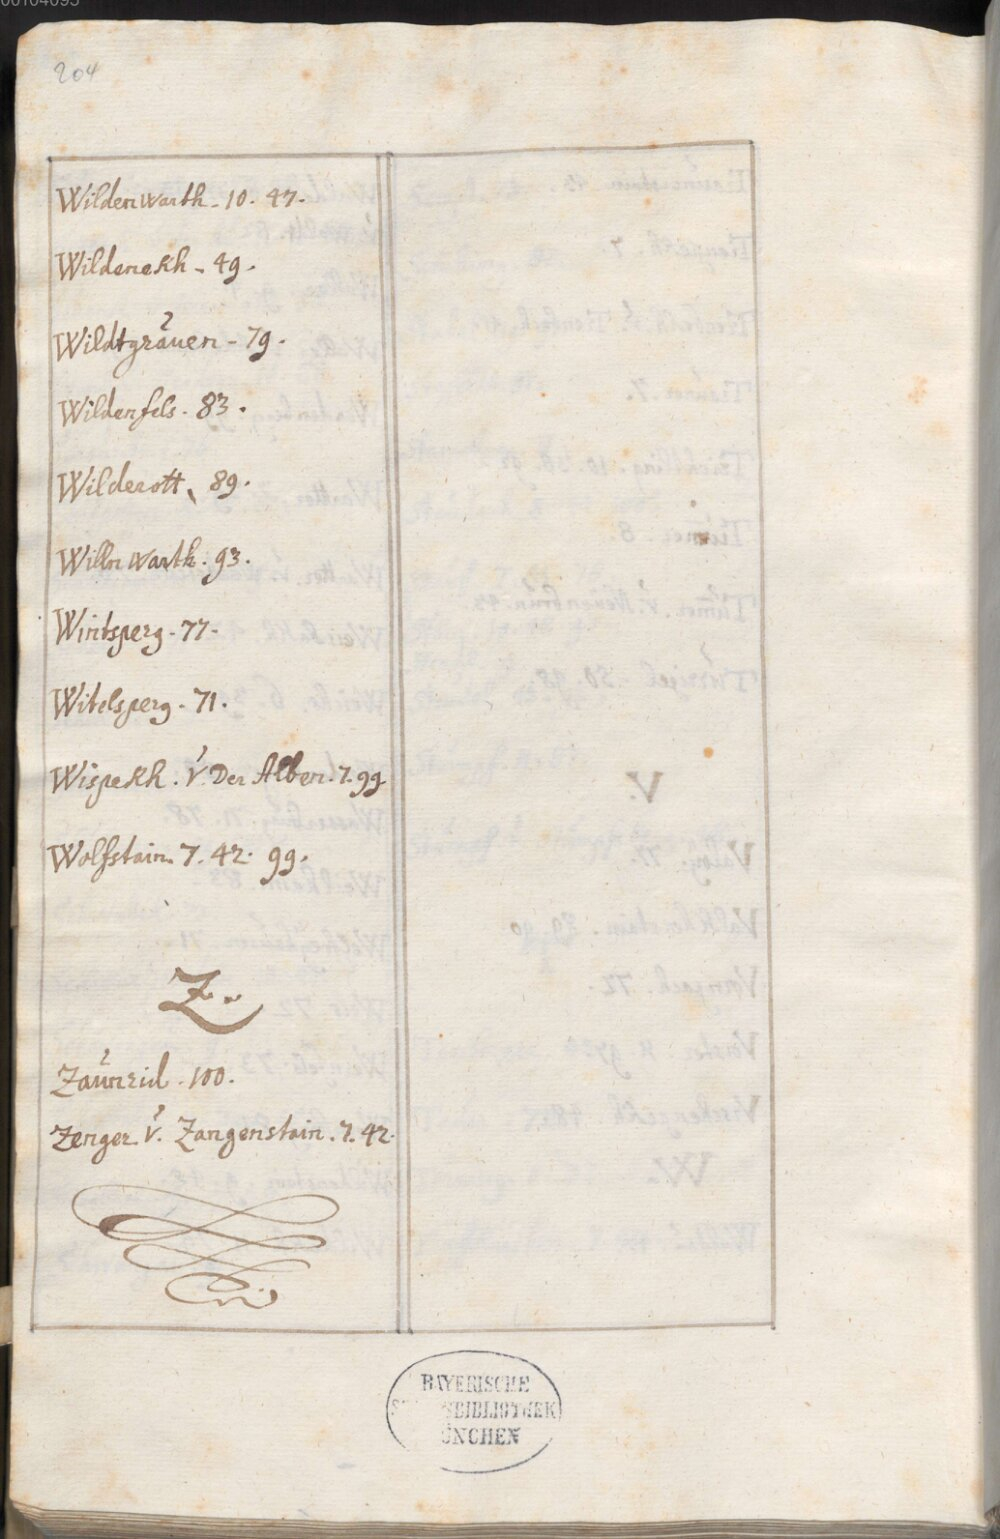 00104095
204
Wildenwarth. 10. 47.
Wildenekh. 49.
Wildtgrauen. 79.
Wildenfels. 83.
Wilderott. 89.
Willnwarth. 93.
Wintsperg. 77.
Witelsperg. 71.
Wispekh. V. Der Alben. 7. 99
Wolfstain. 7. 42. 99.
Z.
Zaunrid. 100.
Zenger. V. Zangenstain. 7. 42.
BAYERISCHE
SBIBLIOTHEK
ÜNCHEN